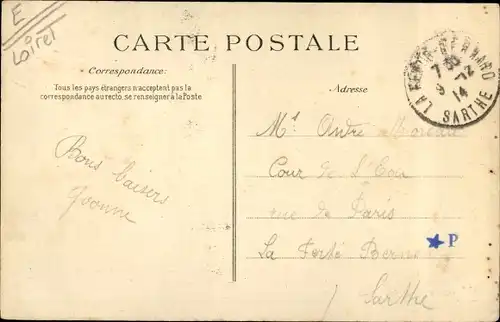 E
Loiret
CARTE POSTALE
Correspondance:
Tous les pays étrangers n'acceptent pas la
correspondance au recto, se renseigner à la Poste
Adresse
LA FERTÉ-BERNARD
7 30
9 - 12
14
SARTHE
Bons baisers
Yvonne
Mr Andre Moreau
Cour de L'Ecu
rue de Paris
La Ferté Bern
Sarthe
★ P